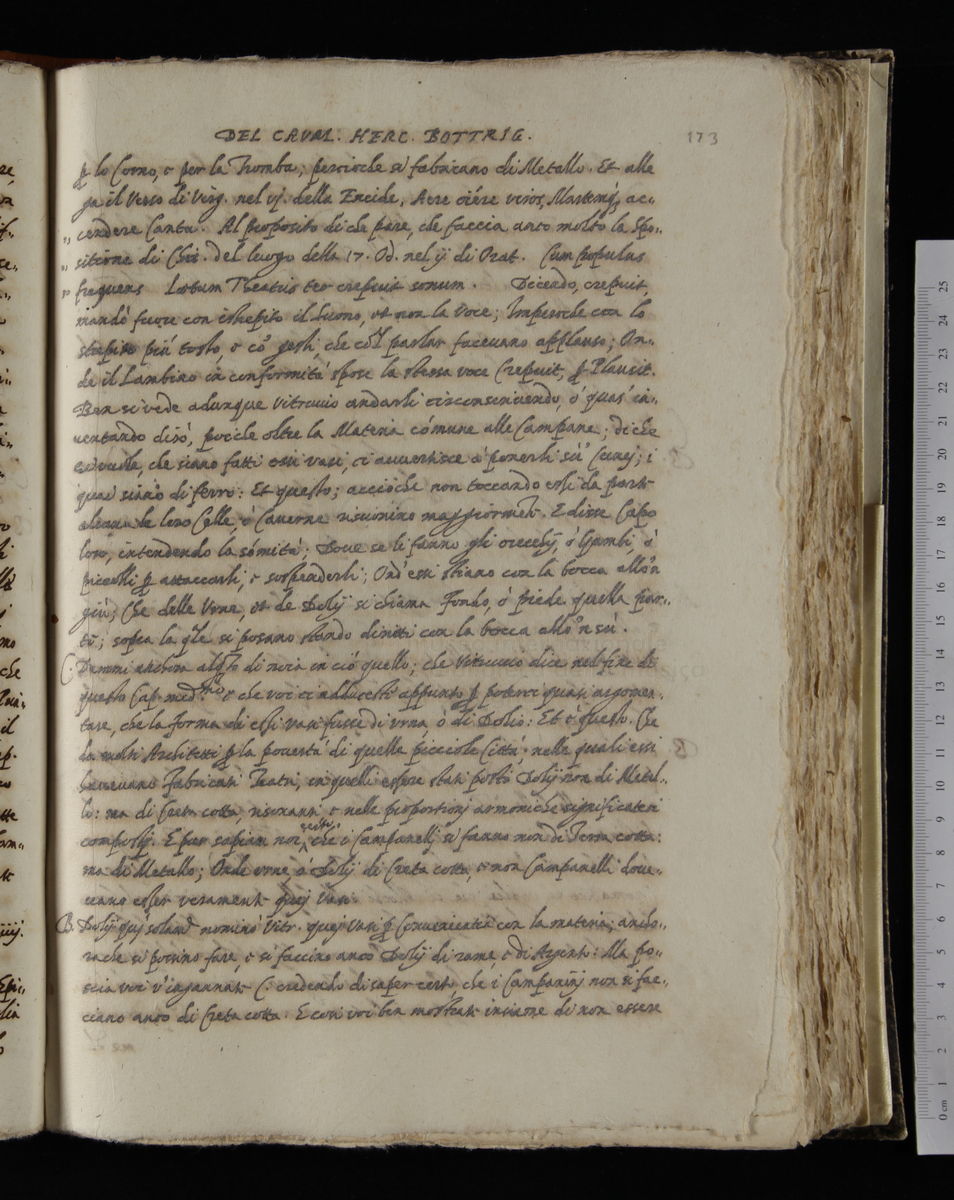 DEL CAVAL. HERC. BOTTRIG. 173
ꝑ lo Corno, e per la Tromba; percioche si fabricano di Metallo. Et alle
ga il verso di Virg. nel vj. della Eneide, Aere ciere viros, Martemq́, ac-
cendere Cantu. Al proposito di che pare, che faccia anco molto la Spo-
sitione di del luogo della 17. Od. nel ij di Orat. Cum populus
frequens Laetum Theatris ter crepuit sonum. Dicendo, crepuit,
mandò fuore con istrepito il suono, et non la voce; Imperoche con lo
strepito più tosto, e cõ gesti, che col parlar facevano applauso; On-
de il Lambino in conformità spose la stessa voce Crepuit, ꝑ Plausit.
Ben si vede adunque Vitruvio andarli circonscrivendo, ò quasi in-
ventando dirò, poiche oltre la Materia cómune alle Campane; di che
ei vuole, che siano fatti essi vasi, ci avvertisce à ponerli sù Cunej; i
quai siano di ferro: Et questo; accioche non toccando essi da parte
alcuna le loro Celle, ò Caverne risuonino maggiormente. E disse Capo
loro, intendendo la sómità; Dove se li fanno gli orecchij, ò Gambi ò
piccolli ꝑ attaccarli, e sospenderli; Ond'essi stiano con la bocca allo'n
giù; Che delle Urne, et de Dolij si chiama Fondo, ò piede quella par-
te; sopra la qle si posano stando diritti con la bocca allo'n sù.
C. Dammi anchora alqto di noia in ciò quello; che Vitruvio dice nel fine di
questo Cap. med.mo e che voi ci adducesti appunto ꝑ poterci quasi argomen-
tare, che la forma di essi vasi fusse di urna, ò di Dolio: Et è questo. Che
da molti Architetti ꝑ la povertà di quelle picciole Città; nelle quali essi
havevano Fabricati Teatri, in quelli essere stati posti Dolij non di Metal-
lo: ma di Creta cotta, risonanti e nelle proportionj armoniche significate
compostj. E pur sapiam noi, certo che i Campanellj si fanno non di Terra cotta:
ma di Metallo; Onde urne, ò Dolij di Creta cotta, e non Campanelli dove-
vano esser veramente quej Vasi.
B. Dolij Vitr. quej Vasi ꝑ convenientia con la materia; ancho-
rache si possino fare, e si faccino anco Dolij di rame, e di Argento: Ma po-
scia voi v'ingannate C. credendo di saper certo che i Campaninj non si fac-
ciano anco di Creta cotta. E così voi ben mostrate insieme di non essere